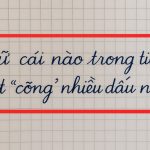 ữ cái nào trong ti
t “cõng’ nhiều dấu n